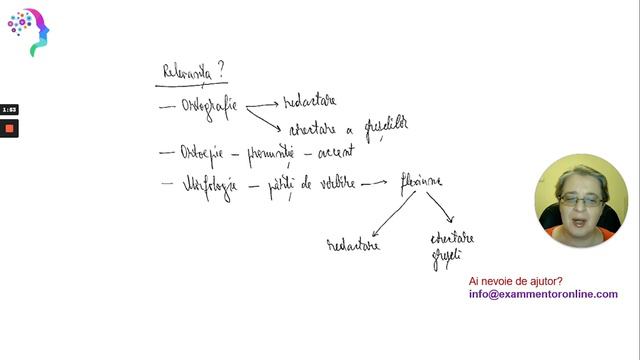 1:53
Relevanța?
— Ortografie → redactare
→ corectare a greșelilor
— Ortoepie – pronunție – accent
— Morfologie – părți de vorbire → flexiune
redactare
corectare
greșeli
Ai nevoie de ajutor?
info@exammentoronline.com